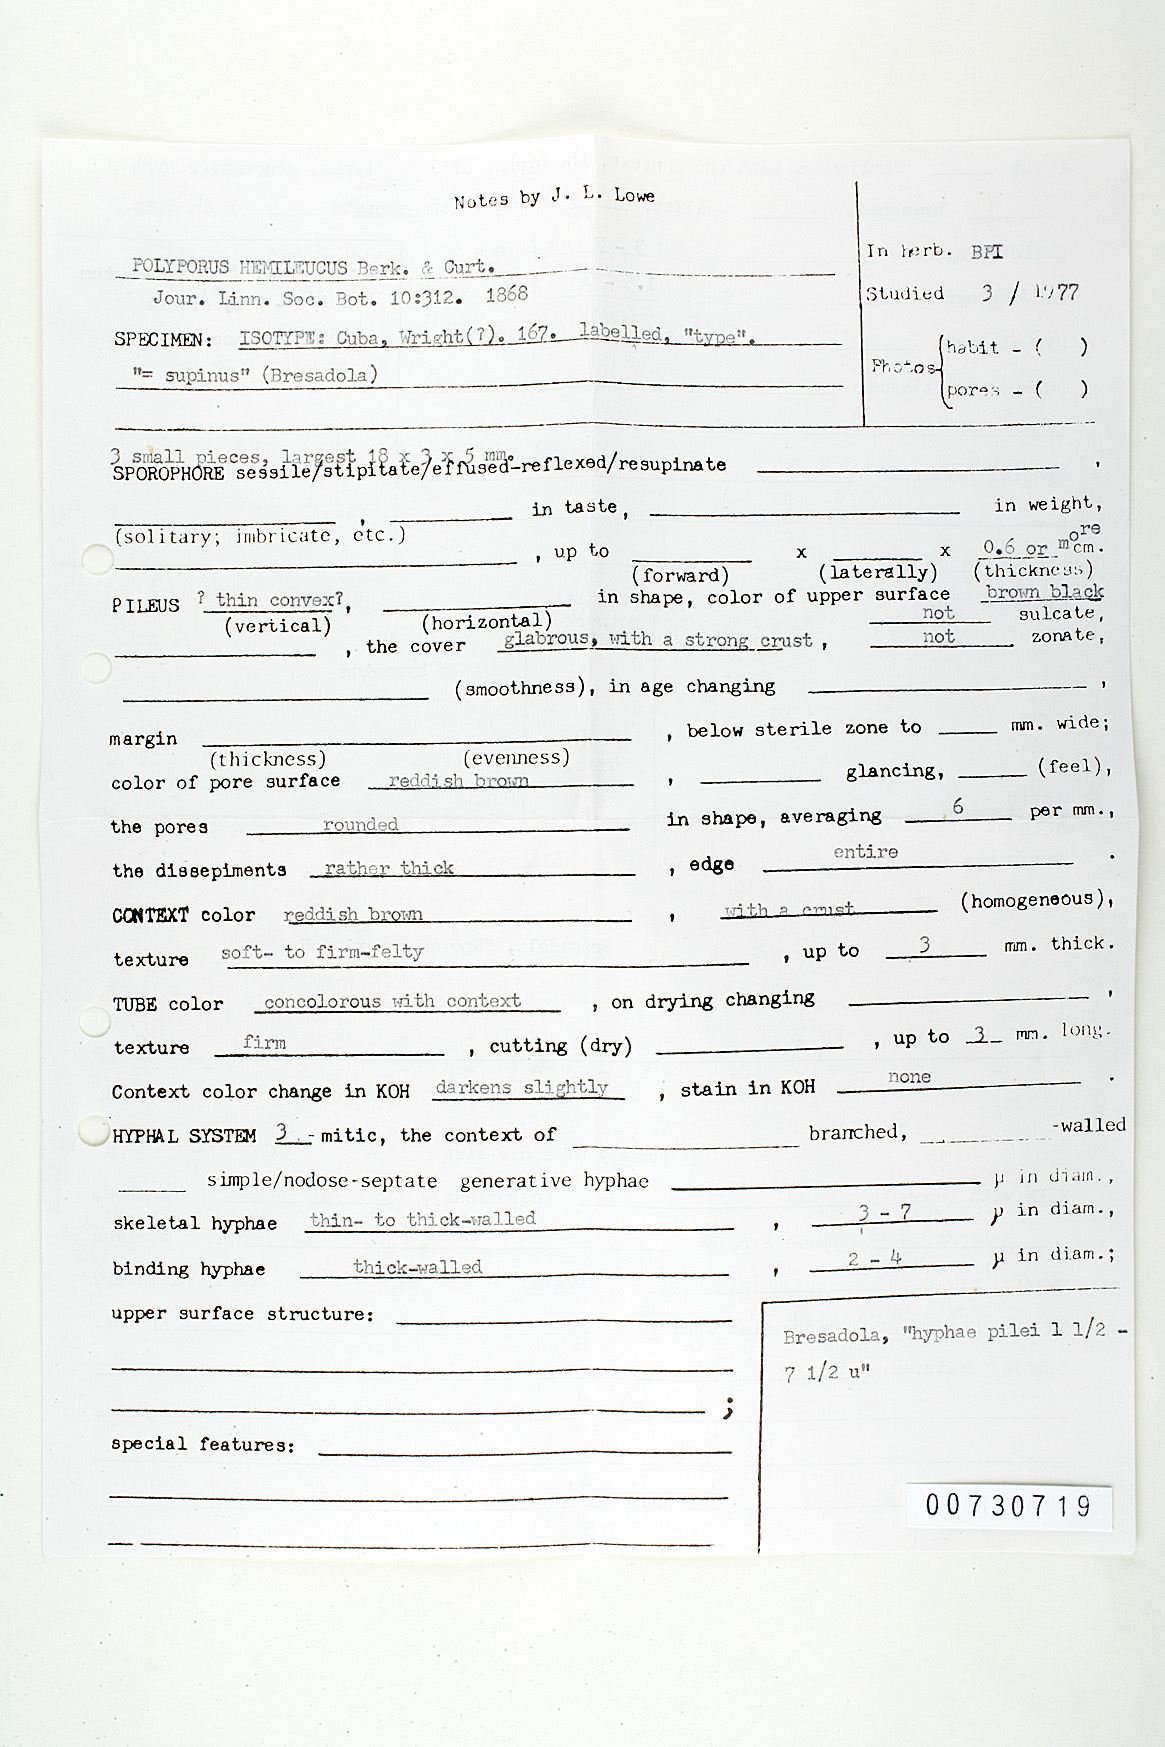 Notes by J. L. Lowe
In herb. BPI
POLYPORUS HEMILEUCUS Berk. & Curt.
Jour. Linn. Soc. Bot. 10:312. 1868
Studied 3 / 1977
SPECIMEN: ISOTYPE: Cuba, Wright(?). 167. labelled, "type".
"= supinus" (Bresadola)
Photos { habit - ( )
pores - ( )
3 small pieces, largest 18 x 3 x 5 mm.
SPOROPHORE sessile/stipitate/effused-reflexed/resupinate ,
, in taste, in weight,
(solitary; imbricate, etc.)
, up to x x 0.6 or more cm.
(forward) (laterally) (thickness)
PILEUS ? thin convex?, in shape, color of upper surface brown black
(vertical) (horizontal) not sulcate,
, the cover glabrous, with a strong crust , not zonate,
(smoothness), in age changing ,
margin , below sterile zone to mm. wide;
(thickness) (evenness)
color of pore surface reddish brown , glancing, (feel),
the pores rounded in shape, averaging 6 per mm.,
the dissepiments rather thick , edge entire .
CONTEXT color reddish brown , with a crust (homogeneous),
texture soft- to firm-felty , up to 3 mm. thick.
TUBE color concolorous with context , on drying changing ,
texture firm , cutting (dry) , up to 3 mm. long.
Context color change in KOH darkens slightly , stain in KOH none .
HYPHAL SYSTEM 3 -mitic, the context of branched, -walled
simple/nodose-septate generative hyphae µ in diam.,
skeletal hyphae thin- to thick-walled , 3 - 7 µ in diam.,
binding hyphae thick-walled , 2 - 4 µ in diam.;
upper surface structure:
Bresadola, "hyphae pilei 1 1/2 -
7 1/2 u"
;
special features:
00730719